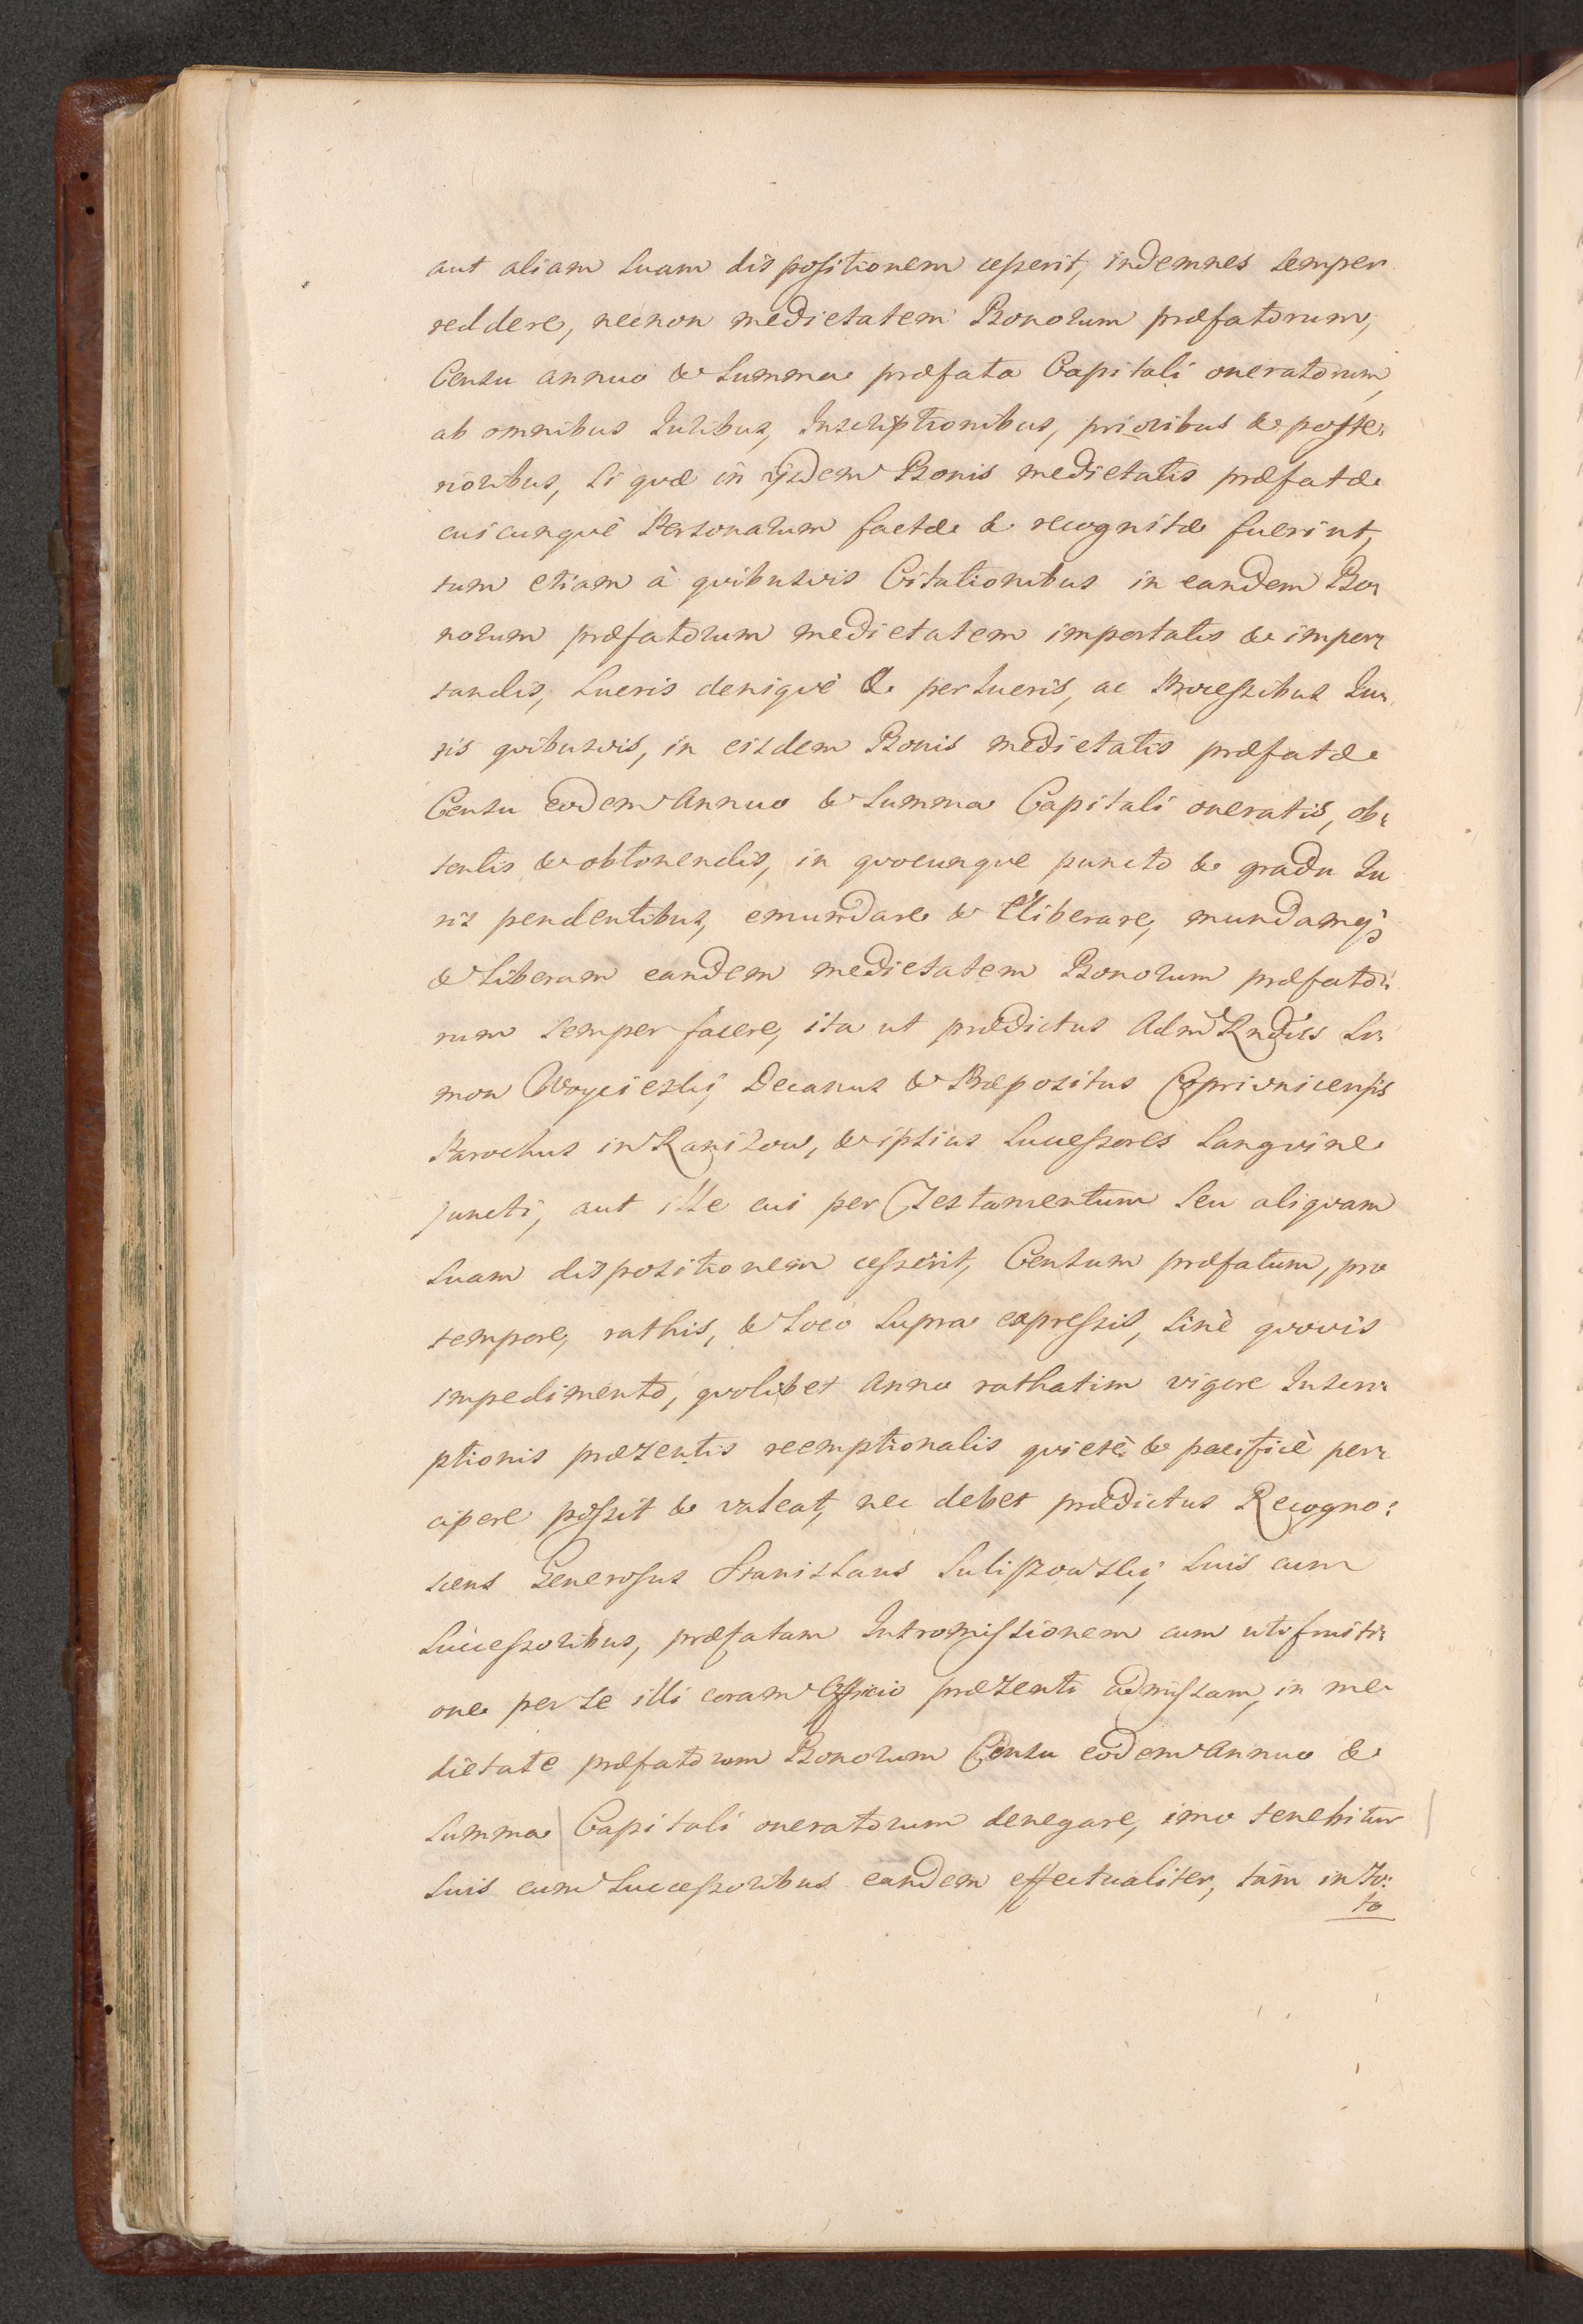 aut aliam suam dispositionem cesserit, indemnes semper
reddere, necnon medietatem Bonorum præfatorum,
Censu annuo & Summa præfata Capitali oneratorum,
ab omnibus Juribus, Inscriptionibus, prioribus & poste:
rioribus, si quæ in ijsdem Bonis medietatis præfatæ
cuicunquè Personarum factæ & recognitæ fuerint,
tum etiam à quibusvis Citationibus in eandem Bo:
norum præfatorum medietatem importatis & impor:
tandis, lucris deniquè & perlucris, ac Processibus Ju:
ris quibusvis, in eisdem Bonis medietatis præfatæ
Censu eodem Annuo & Summa Capitali oneratis, ob:
tentis & obtinendis, in quocunque puncto & gradu Ju
ris pendentibus, emundare & eliberare, mundamq;
& liberam eandem medietatem Bonorum præfato:
rum semper facere, ita ut prædictus Adm Rndus Si:
mon Woycieski Decanus & Præpositus Coprivnicensis
Parochus in Ranizow, & ipsius Successores Sangvine
juncti, aut ille cui per Testamentum seu aliqvam
suam dispositionem cesserit, Censum præfatum, pro
tempore, rathis, & loco supra expressis, sinè quovis
impedimento, quolibet Anno rathatim vigore Inscri:
ptionis præzentis reemptionalis quietè & pacificè per:
cipere possit & valeat, nec debet prædictus Recogno:
scens Generosus Stanislaus Suliszowskij suis cum
Successoribus, præfatam Intromissionem cum utifruiti:
one per se illi coram Officio præzenti admissam, in me:
dietate præfatorum Bonorum Censu eodem Annuo &
Summa Capitali oneratorum denegare, imo tenebitur
suis cum Successoribus eandem effectualiter, tàm in to:
to